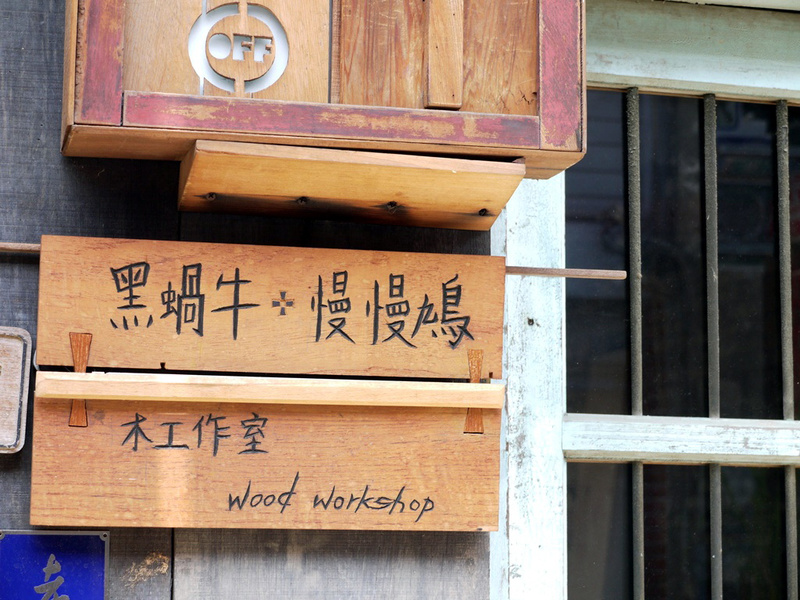 OFF
黑蝸牛+慢慢鳩
木工作室
wood workshop